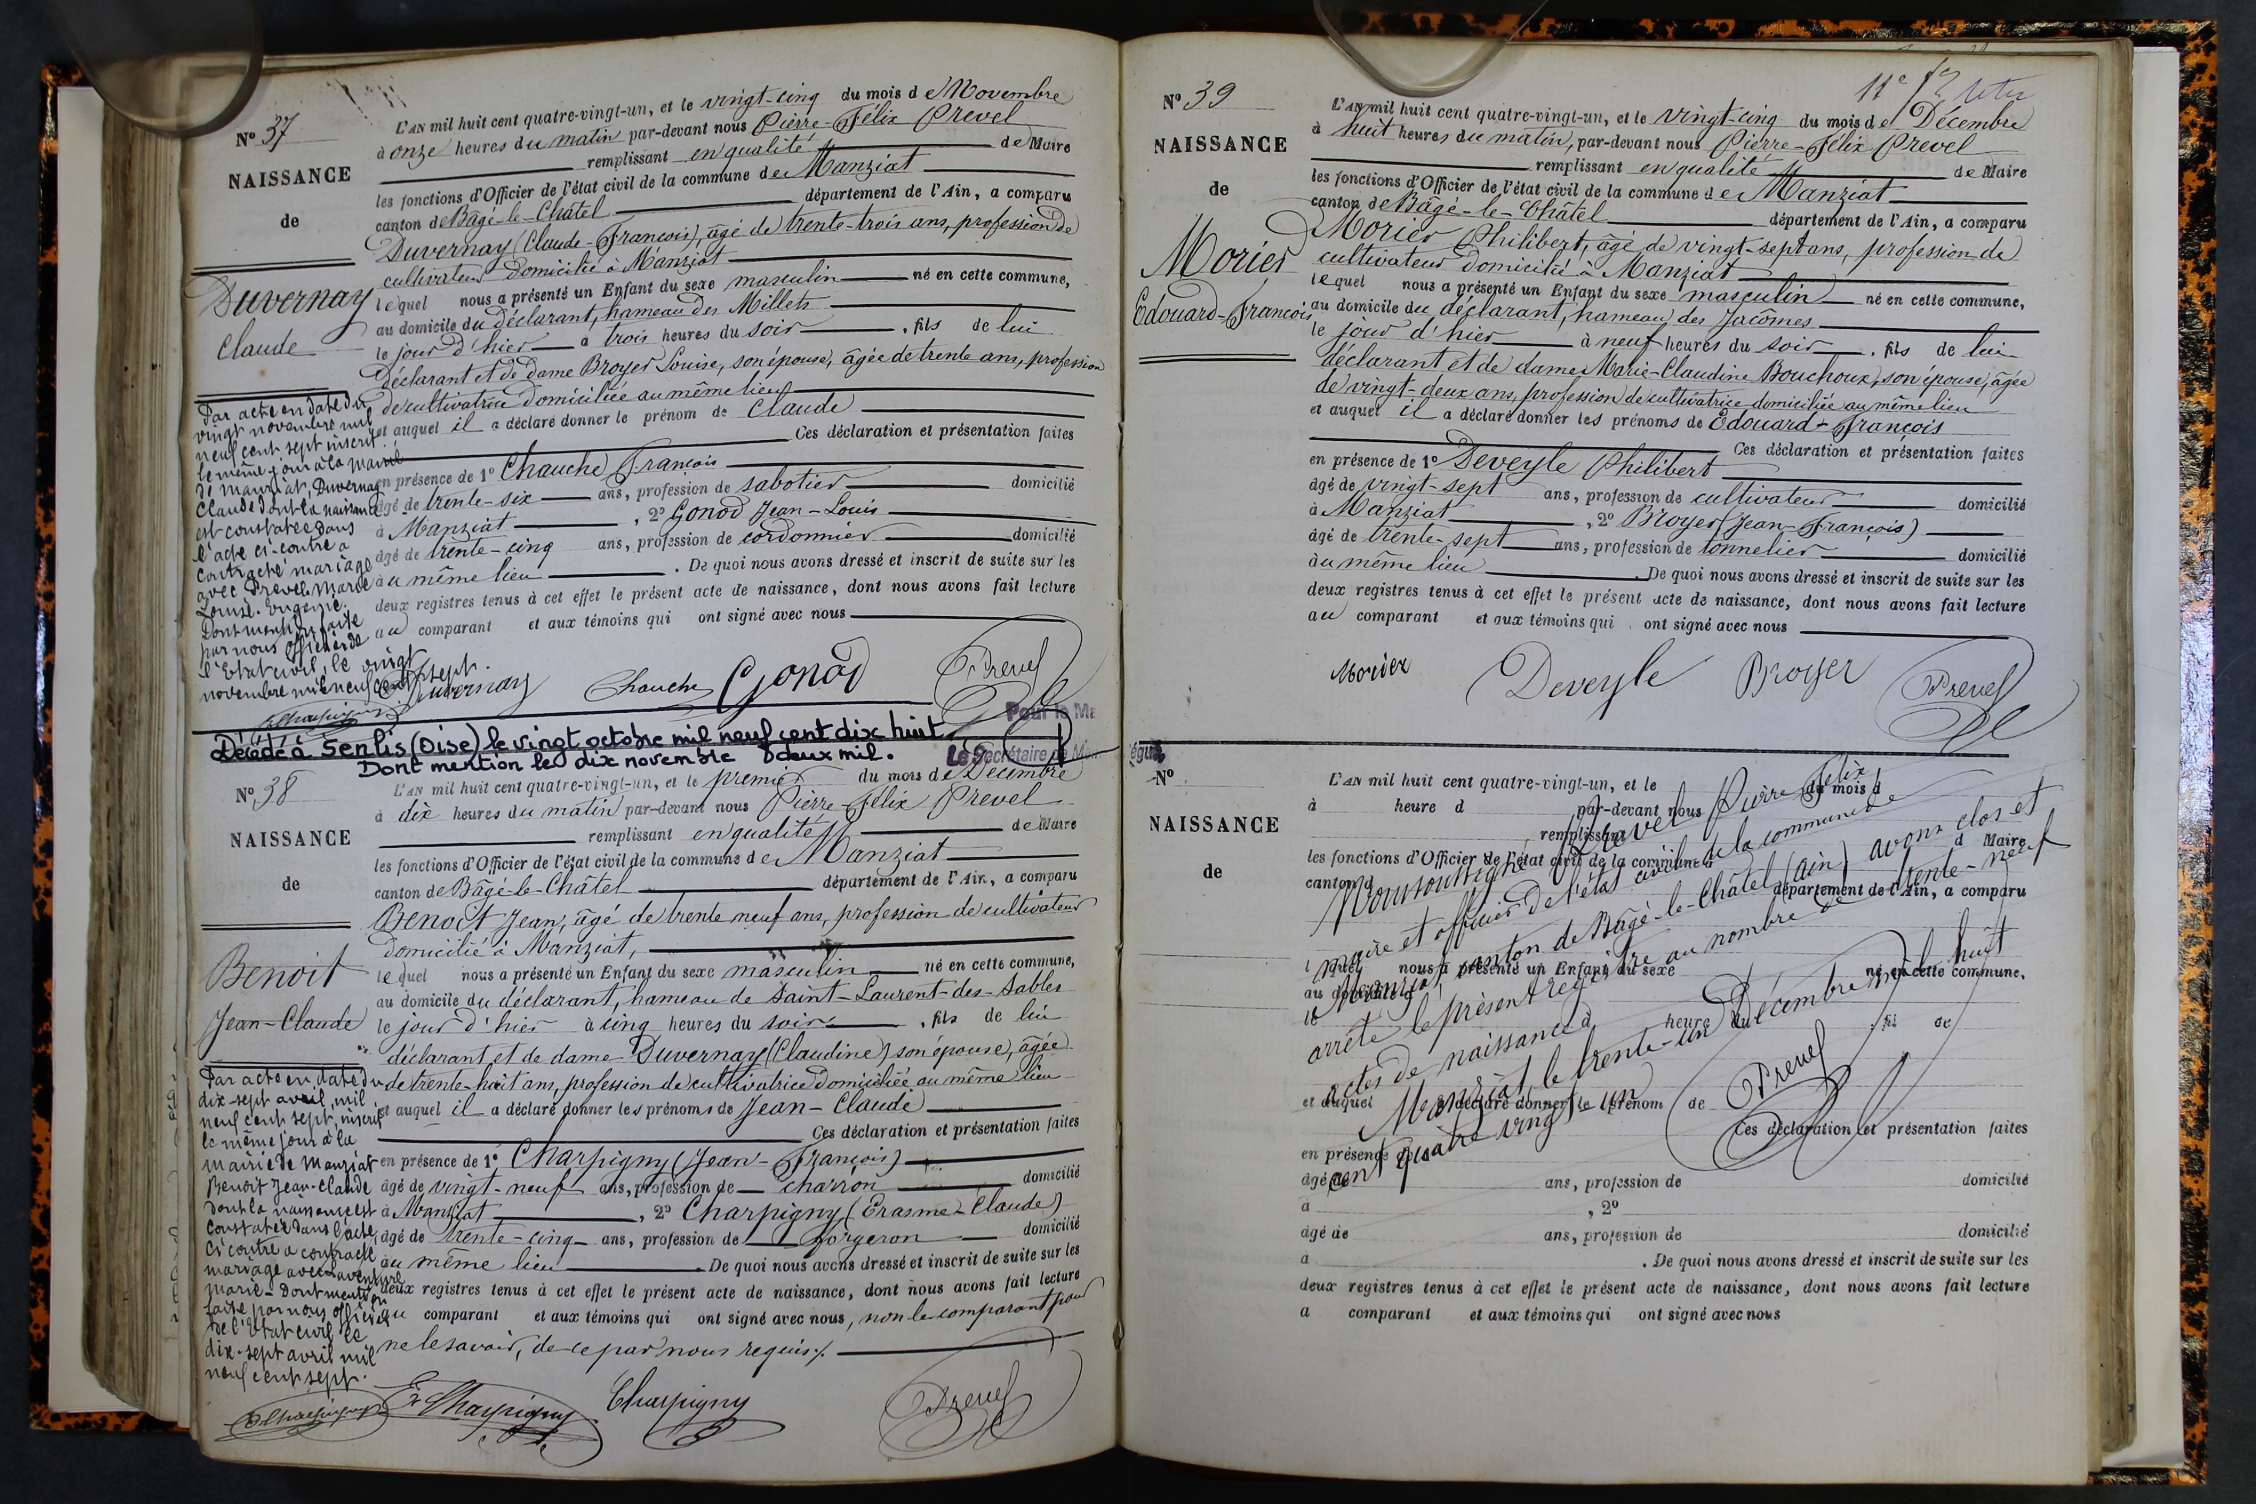 N° 37
NAISSANCE
de
Duvernay
Claude
L'AN mil huit cent quatre-vingt-un, et le vingt-cinq du mois de Novembre
à onze heures du matin par-devant nous Pierre-Félix Prevel
remplissant en qualité de Maire
les fonctions d'Officier de l'état civil de la commune de Manziat
canton de Bâgé-le-Châtel département de l'Ain, a comparu
Duvernay (Claude-François), âgé de trente-trois ans, profession de
cultivateur domicilié à Manziat
lequel nous a présenté un Enfant du sexe masculin né en cette commune,
au domicile du déclarant, hameau des Millets
le jour d'hier à trois heures du soir, fils de lui
déclarant et de dame Broyer Louise, son épouse, âgée de trente ans, profession
de cultivatrice domiciliée au même lieu
et auquel il a déclaré donner le prénom de Claude
Ces déclaration et présentation faites
en présence de 1° Chauche François
âgé de trente-six ans, profession de sabotier domicilié
à Manziat, 2° Gonod Jean-Louis
âgé de trente-cinq ans, profession de cordonnier domicilié
au même lieu. De quoi nous avons dressé et inscrit de suite sur les
deux registres tenus à cet effet le présent acte de naissance, dont nous avons fait lecture
au comparant et aux témoins qui ont signé avec nous
Par acte en date du
vingt novembre mil
neuf cent sept inscrit
le même jour à la mairie
de Manziat, Duvernay
Claude dont la naissance
est constatée dans
l'acte ci-contre a
contracté mariage
avec Prevel Marie
Louise-Eugénie.
Dont mention faite
par nous officier de
l'Etat civil, le vingt
novembre mil neuf cent sept.
Duvernay Chauche Gonod Prevel
Décédé à Senlis (Oise) le vingt octobre mil neuf cent dix huit
Dont mention le dix novembre deux mil.
Pour le Ma
Le Secrétaire de Mairie délégué,
N° 38
NAISSANCE
de
Benoit
Jean-Claude
L'AN mil huit cent quatre-vingt-un, et le premier du mois de Décembre
à dix heures du matin par-devant nous Pierre-Félix Prevel
remplissant en qualité de Maire
les fonctions d'Officier de l'état civil de la commune de Manziat
canton de Bâgé-le-Châtel département de l'Ain, a comparu
Benoit Jean, âgé de trente neuf ans, profession de cultivateur
domicilié à Manziat,
lequel nous a présenté un Enfant du sexe masculin né en cette commune,
au domicile du déclarant, hameau de Saint-Laurent-des-Sables
le jour d'hier à cinq heures du soir, fils de lui
déclarant et de dame Duvernay (Claudine) son épouse, âgée
de trente-huit ans, profession de cultivatrice domiciliée au même lieu
et auquel il a déclaré donner les prénoms de Jean-Claude
Ces déclaration et présentation faites
en présence de 1° Charpigny (Jean-François)
âgé de vingt-neuf ans, profession de charron domicilié
à Manziat, 2° Charpigny (Erasme-Claude)
âgé de trente-cinq ans, profession de forgeron domicilié
au même lieu. De quoi nous avons dressé et inscrit de suite sur les
deux registres tenus à cet effet le présent acte de naissance, dont nous avons fait lecture
au comparant et aux témoins qui ont signé avec nous, non le comparant pour
ne le savoir, de ce par nous requis.
Par acte en date du
dix-sept avril mil
neuf cent sept, inscrit
le même jour à la
mairie de Manziat
Benoit Jean-Claude
dont la naissance est
constatée dans l'acte
ci contre a contracté
mariage avec Laventure
Marie. Dont mention
faite par nous officier
de l'Etat civil le
dix-sept avril mil
neuf cent sept.
Charpigny Charpigny Prevel
N° 39
NAISSANCE
de
Morier
Edouard-François
11e
L'AN mil huit cent quatre-vingt-un, et le vingt-cinq du mois de Décembre
à huit heures du matin, par-devant nous Pierre-Félix Prevel
remplissant en qualité de Maire
les fonctions d'Officier de l'état civil de la commune de Manziat
canton de Bâgé-le-Châtel département de l'Ain, a comparu
Morier Philibert, âgé de vingt-sept ans, profession de
cultivateur domicilié à Manziat
lequel nous a présenté un Enfant du sexe masculin né en cette commune,
au domicile du déclarant, hameau des Jacômes
le jour d'hier à neuf heures du soir, fils de lui
déclarant et de dame Marie-Claudine Bouchoux, son épouse, âgée
de vingt-deux ans, profession de cultivatrice domiciliée au même lieu
et auquel il a déclaré donner les prénoms de Edouard-François
Ces déclaration et présentation faites
en présence de 1° Deveyle Philibert
âgé de vingt-sept ans, profession de cultivateur domicilié
à Manziat, 2° Broyer (Jean-François)
âgé de trente-sept ans, profession de tonnelier domicilié
au même lieu. De quoi nous avons dressé et inscrit de suite sur les
deux registres tenus à cet effet le présent acte de naissance, dont nous avons fait lecture
au comparant et aux témoins qui ont signé avec nous
Morier Deveyle Broyer Prevel
N°
NAISSANCE
de
L'AN mil huit cent quatre-vingt-un, et le du mois d
à heure d par-devant nous
remplissant
d Maire
les fonctions d'Officier de l'état civil de la commune d
canton d département de l'Ain, a comparu
l quel nous a présenté un Enfant du sexe né en cette commune,
au domicile d
le à heure d , fil de
et auquel a déclaré donner le prénom de
Ces déclaration et présentation faites
en présence de 1°
âgé de ans, profession de domicilié
à , 2°
âgé de ans, profession de domicilié
à . De quoi nous avons dressé et inscrit de suite sur les
deux registres tenus à cet effet le présent acte de naissance, dont nous avons fait lecture
a comparant et aux témoins qui ont signé avec nous
Nous soussigné Prevel Pierre Félix
maire et officier de l'état civil de la commune de
Manziat, canton de Bâgé-le-Châtel (Ain) avons clos et
arrêté le présent registre au nombre de trente-neuf
actes de naissance
Manziat, le trente-un Décembre mil huit
cent quatre vingt un
Prevel